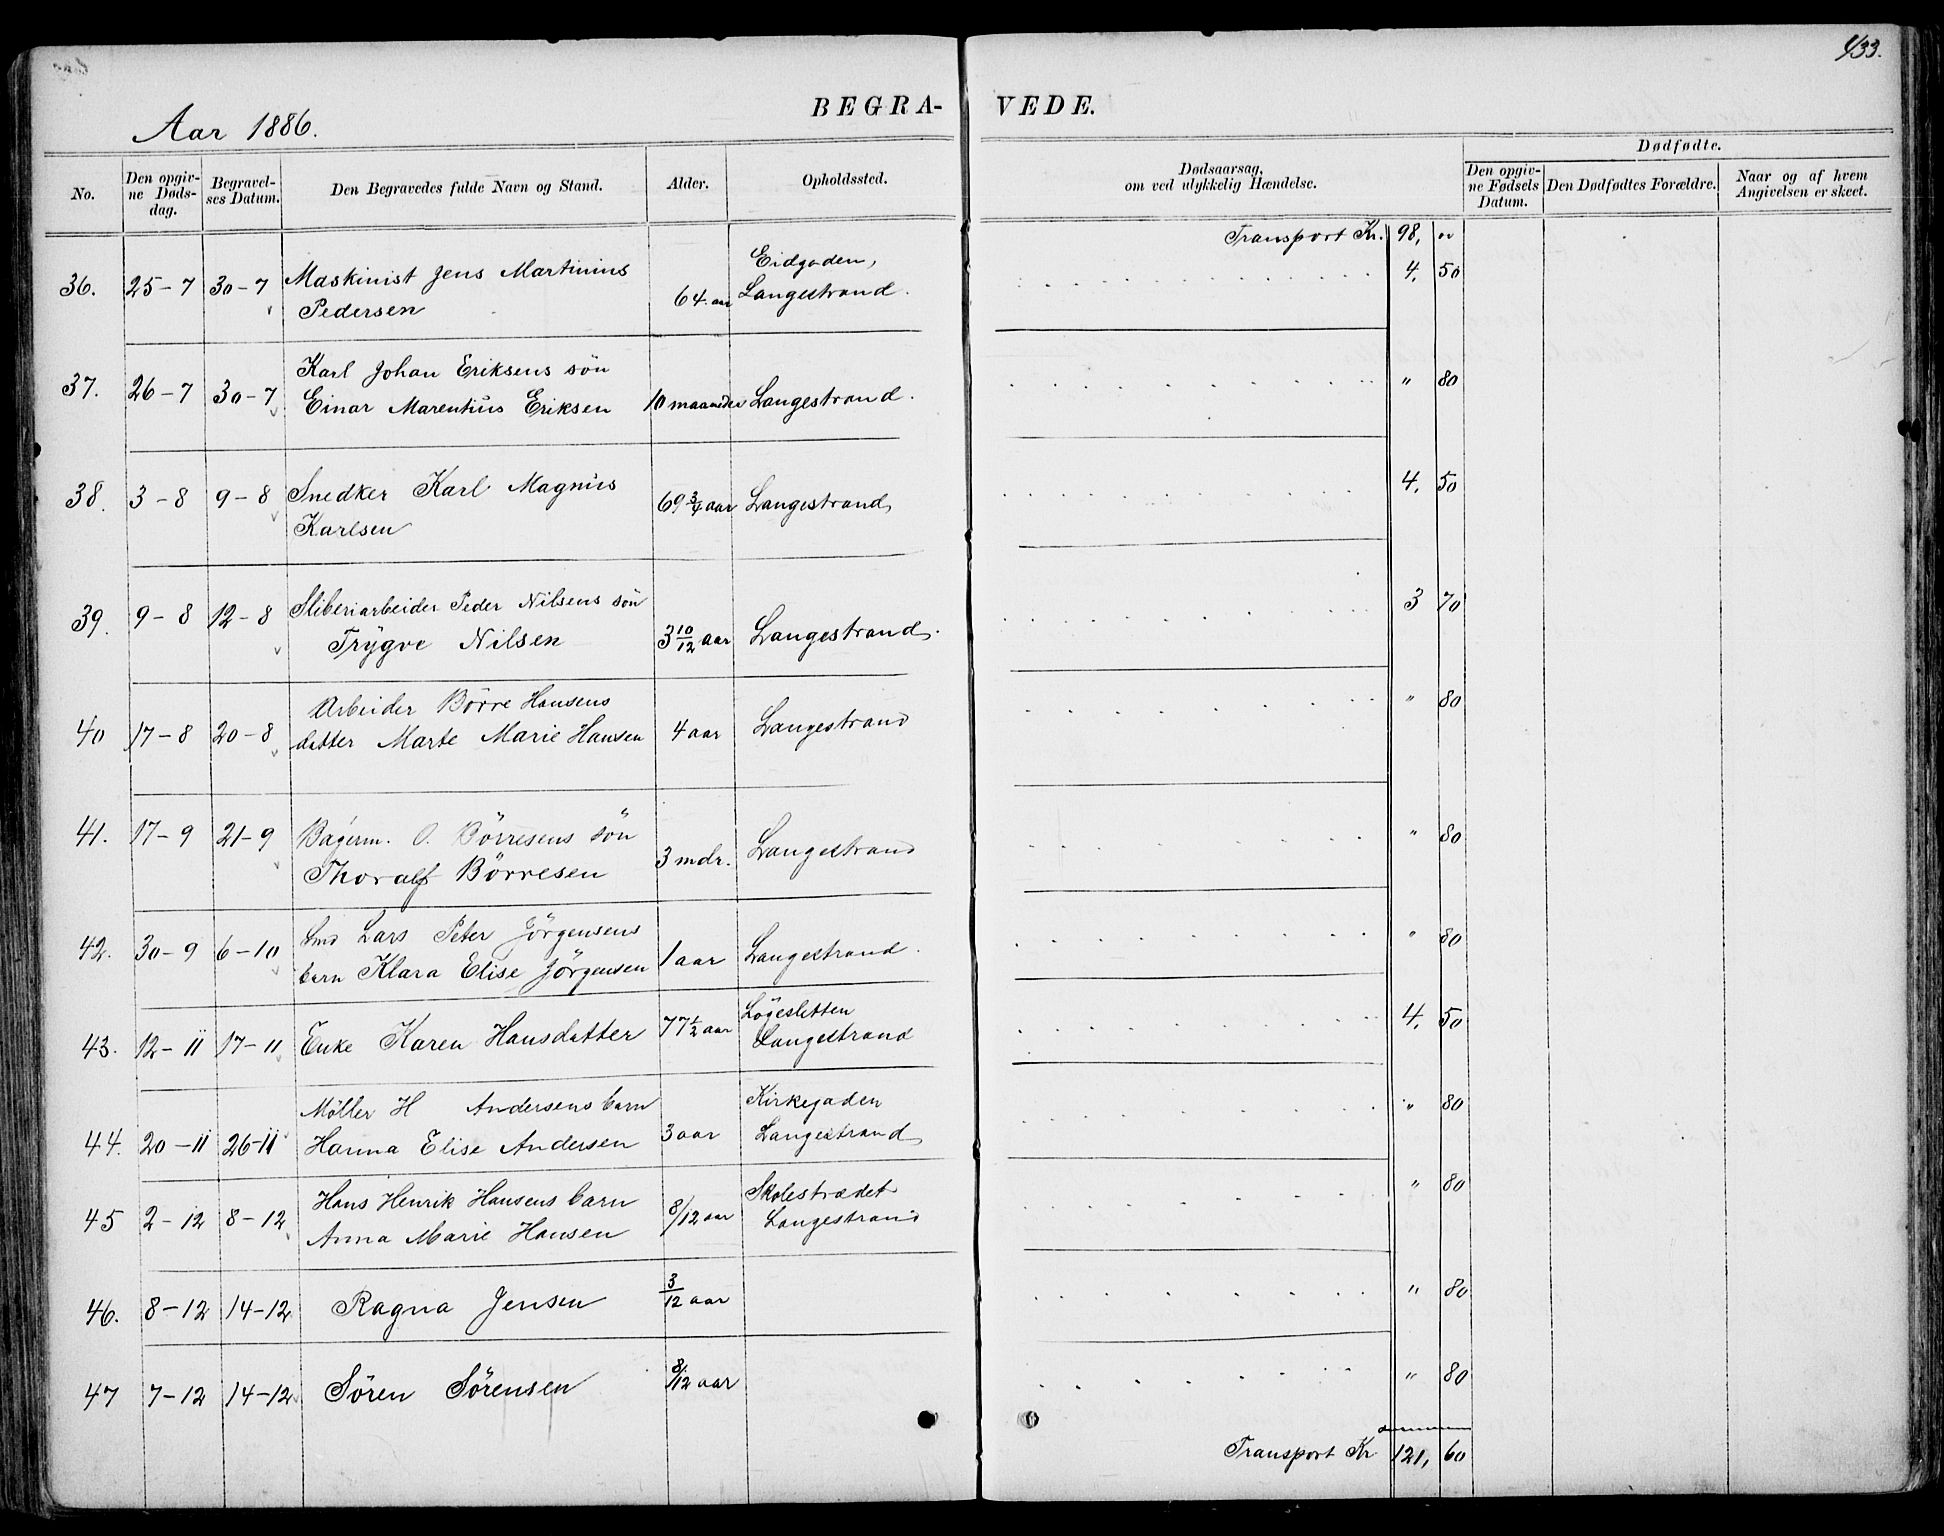 433.
BEGRA- VEDE.
Aar 1886.
Dødfødte.
No.
Den opgivne Dødsdag.
Begravelses Datum.
Den Begravedes fulde Navn og Stand.
Alder.
Opholdssted.
Dødsaarsag, om ved ulykkelig Hændelse.
Den opgivne Fødsels Datum.
Den Dødfødtes Forældre.
Naar og af hvem Angivelsen er skeet.
Transport Kr. 98, "
36. 25-7 30-7 Maskinist Jens Martinius Pedersen 64 aar Eidgaden, Langestrand. 4. 50
37. 26-7 30-7 Karl Johan Eriksens sön Einar Marentius Eriksen 10 maaneder Langestrand. " 80
38. 3-8 9-8 Snedker Karl Magnus Karlsen 69 3/4 aar Langestrand 4. 50
39. 9-8 12-8 Sliberiarbeider Peder Nilsens sön Trygve Nilsen 3 10/12 aar Langestrand. 3 70
40 17-8 20-8 Arbeider Börre Hansens datter Marte Marie Hansen 4 aar Langestrand " 80
41. 17-9 21-9 Bagerm. O. Börresens sön Thoralf Börresen 3 mdr. Langestrand " 80
42. 30-9 6-10 Smd Lars Peter Jörgensens barn Klara Elise Jörgensen 1 aar Langestrand. " 80
43. 12-11 17-11 Enke Karen Hansdatter 77 1/2 aar Lögesletten Langestrand 4. 50
44. 20-11 26-11 Möller H Andersens barn Hanna Elise Andersen 3 aar Kirkegaden Langestrand " 80
45 2-12 8-12 Hans Henrik Hansens barn Anna Marie Hansen 8/12 aar Skolestrædet Langestrand " 80
46. 8-12 14-12 Ragna Jensen 3/12 aar " 80
47 7-12 14-12 Sören Sörensen 8/12 aar " 80
Transport Kr 121, 60